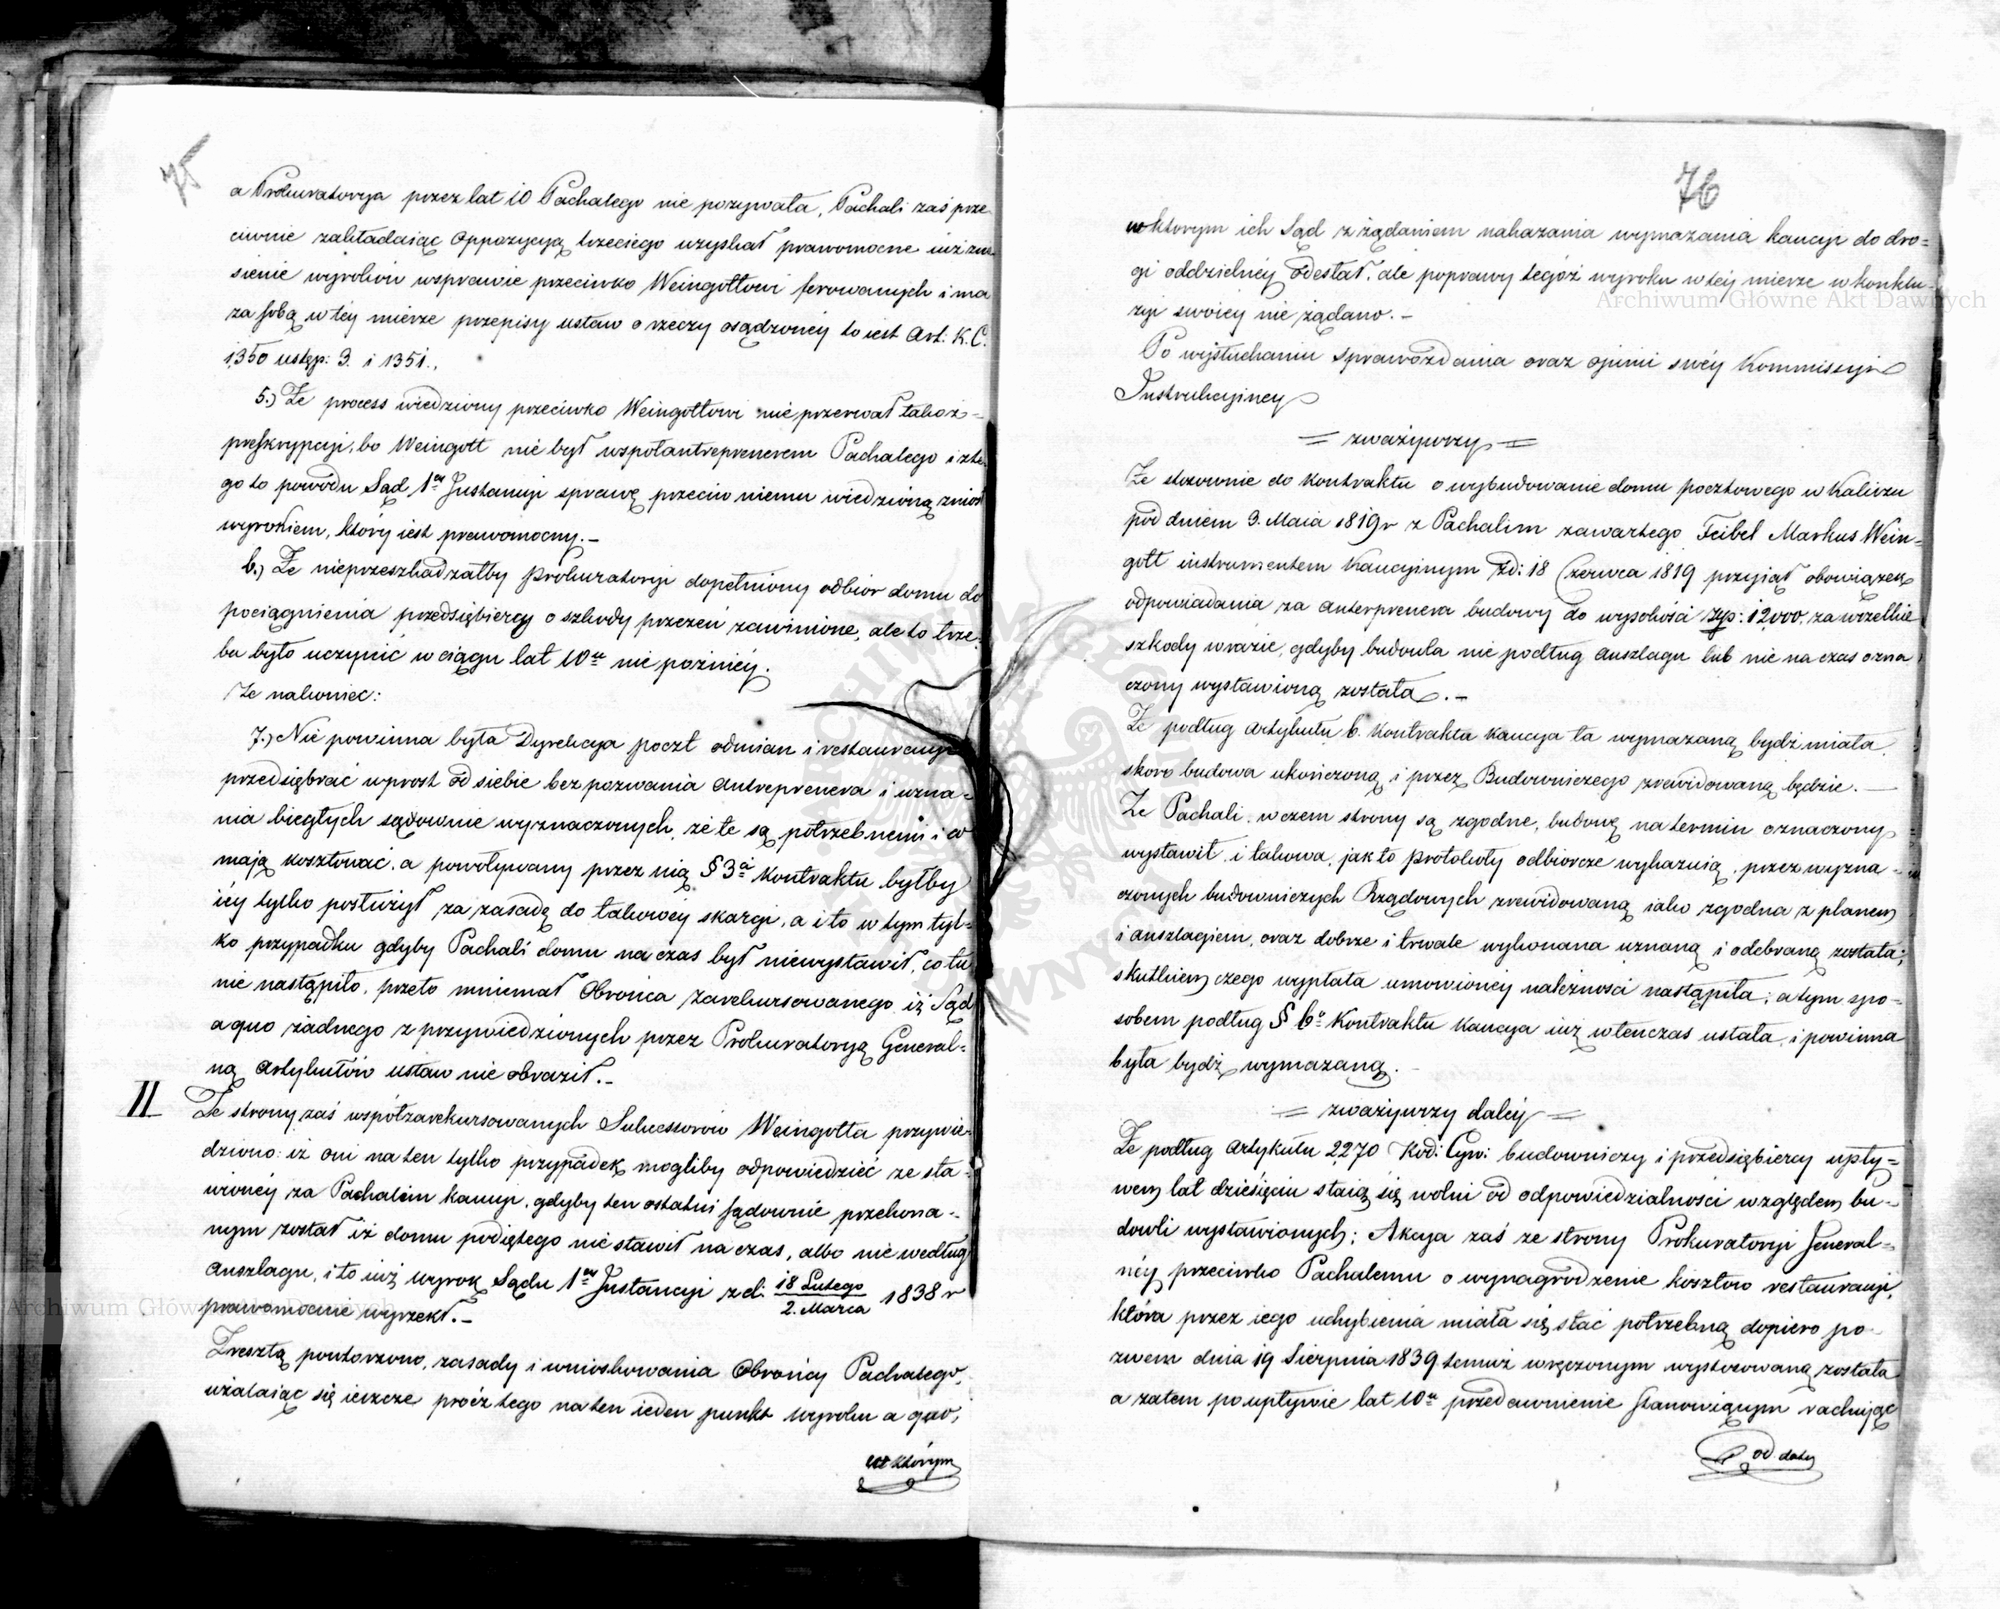 75
a Prokuratorya przez lat 10 Pachalego nie pozywała, Pachali zaś prze
ciwnie zakładaiąc oppozycyą trzeciego uzyskał prawomocne iuż znie
sienie wyroków wsprawie przeciwko Weingottowi ferowanych i ma
za sobą w téy mierze przepisy ustaw o rzeczy osądzonéy to iest Art: K. C.
1350 ustęp: 3. i 1351.,
5.) Że process wiedziony przeciwko Weingottowi nie przerwał takoż-
preskrypcyi, bo Weingott nie był wspołantreprenerem Pachalego i zte
go to powodu Sąd 1ey Instancyi sprawę przeciw niemu wiedzioną zniosł
wyrokiem, który iest prawomocny.-
6.) Że nieprzeszkadzałby Prokuratoryi dopełniony odbiór domu do
pociągnienia przedsiębiercy o szkody przezeń zawinione, ale to trze-
ba było uczynić w ciągu lat 10u nie poźniéy.
Że nakoniec:
7.) Nie powinna była Dyrekcya poczt odmian i restauracyi
przedsiębrać wprost od siebie bez pozwania Antreprenera i uzna=
nia biegłych sądownie wyznaczonych, że te są potrzebnemi i co
maią kosztować, a powoływany przez nią § 3ci Kontraktu byłby
iéy tylko posłużył za zasadę do takowéy skargi, a i to w tym tyl-
ko przypadku gdyby Pachali domu na czas był niewystawił, co tu
nie nastąpiło, przeto mniemał Obrońca zarekursowanego iż Sąd
a quo żadnego z przywiedzionych przez Prokuratoryą General=
ną Artykułów ustaw nie obraził.-
II Ze strony zaś współzarekursowanych Sukcessorów Weingotta przywie-
dziono: iż oni na ten tylko przypadek mogliby odpowiedzieć ze sta-
wionéy za Pachalim kaucyi, gdyby ten ostatni sądownie przekona-
nym został iż domu podiętego nie stawił na czas, albo nie według
Anszlagu, i to iuż wyrok Sądu 1ey Instancyi z d. 18 Lutego / 2. Marca 1838 r
prawomocnie wyrzekł.-
Zresztą powtorzono, zasady i wnioskowania Obrońcy Pachalego,
użalaiąc się ieszcze prócz tego na ten ieden punkt wyroku a quo,
w którym
76
w ktorym ich Sąd z żądaniem nakazania wymazania kaucyi do dro=
gi oddzielnéy odesłał, ale poprawy tegóż wyroku w téy mierze w konklu-
zyi swoiey nie żądano.-
Po wysłuchaniu sprawozdania oraz opinii swéy Kommissyi
Instrukcyiney
= zważywszy =
Że stosownie do Kontraktu o wybudowanie domu pocztowego w Kaliszu
pod dniem 3. Maia 1819 r z Pachalim zawartego Feibel Markus Wein=
gott instrumentem Kaucyinym z d: 18 Czerwca 1819 przyiął obowiązek
odpowiadania za Anterprenera budowy do wysokości zzp: 12000. za wszelkie
szkody w razie, gdyby budowla nie podług Anszlagu lub nie na czas ozna
czony wystawioną została.-
Że podług Artykułu 6. Kontraktu kaucya ta wymazaną bydź miała,
skoro budowa ukończoną i przez Budowniczego zrewidowaną będzie.-
Że Pachali, w czem strony są zgodne, budowę na termin oznaczony
wystawił, i takowa, jak to Protokoły odbiorcze wykazuią, przez wyzna-
czonych budowniczych Rządowych zrewidowaną iako zgodna z planem
i anszlagiem, oraz dobrze i trwale wykonana uznaną i odebraną została;
skutkiem czego wypłata umowionéy należności nastąpiła; a tym spo-
sobem podług § 6o Kontraktu Kaucya iuż wtenczas ustała, i powinna
była bydź wymazaną.-
= zważywszy daléy =
Że podług Artykułu 2270 Kod: Cyw: budowniczy i przedsiębiercy upły=
wem lat dziesięciu staią się wolni od odpowiedzialności względem bu-
dowli wystawionych; Akcya zaś ze strony Prokuratoryi General=
néy przeciwko Pachalemu o wynagrodzenie kosztow restauracyi,
która przez iego uchybienia miała się stać potrzebną dopiero po-
zwem dnia 19 Sierpnia 1839 temuż wręczonym wystosowaną została
a zatem po upływie lat 10u przedawnienie stanowiącym rachuiąc
od daty
Archiwum Główne Akt Dawnych
Archiwum Główne Akt Dawnych